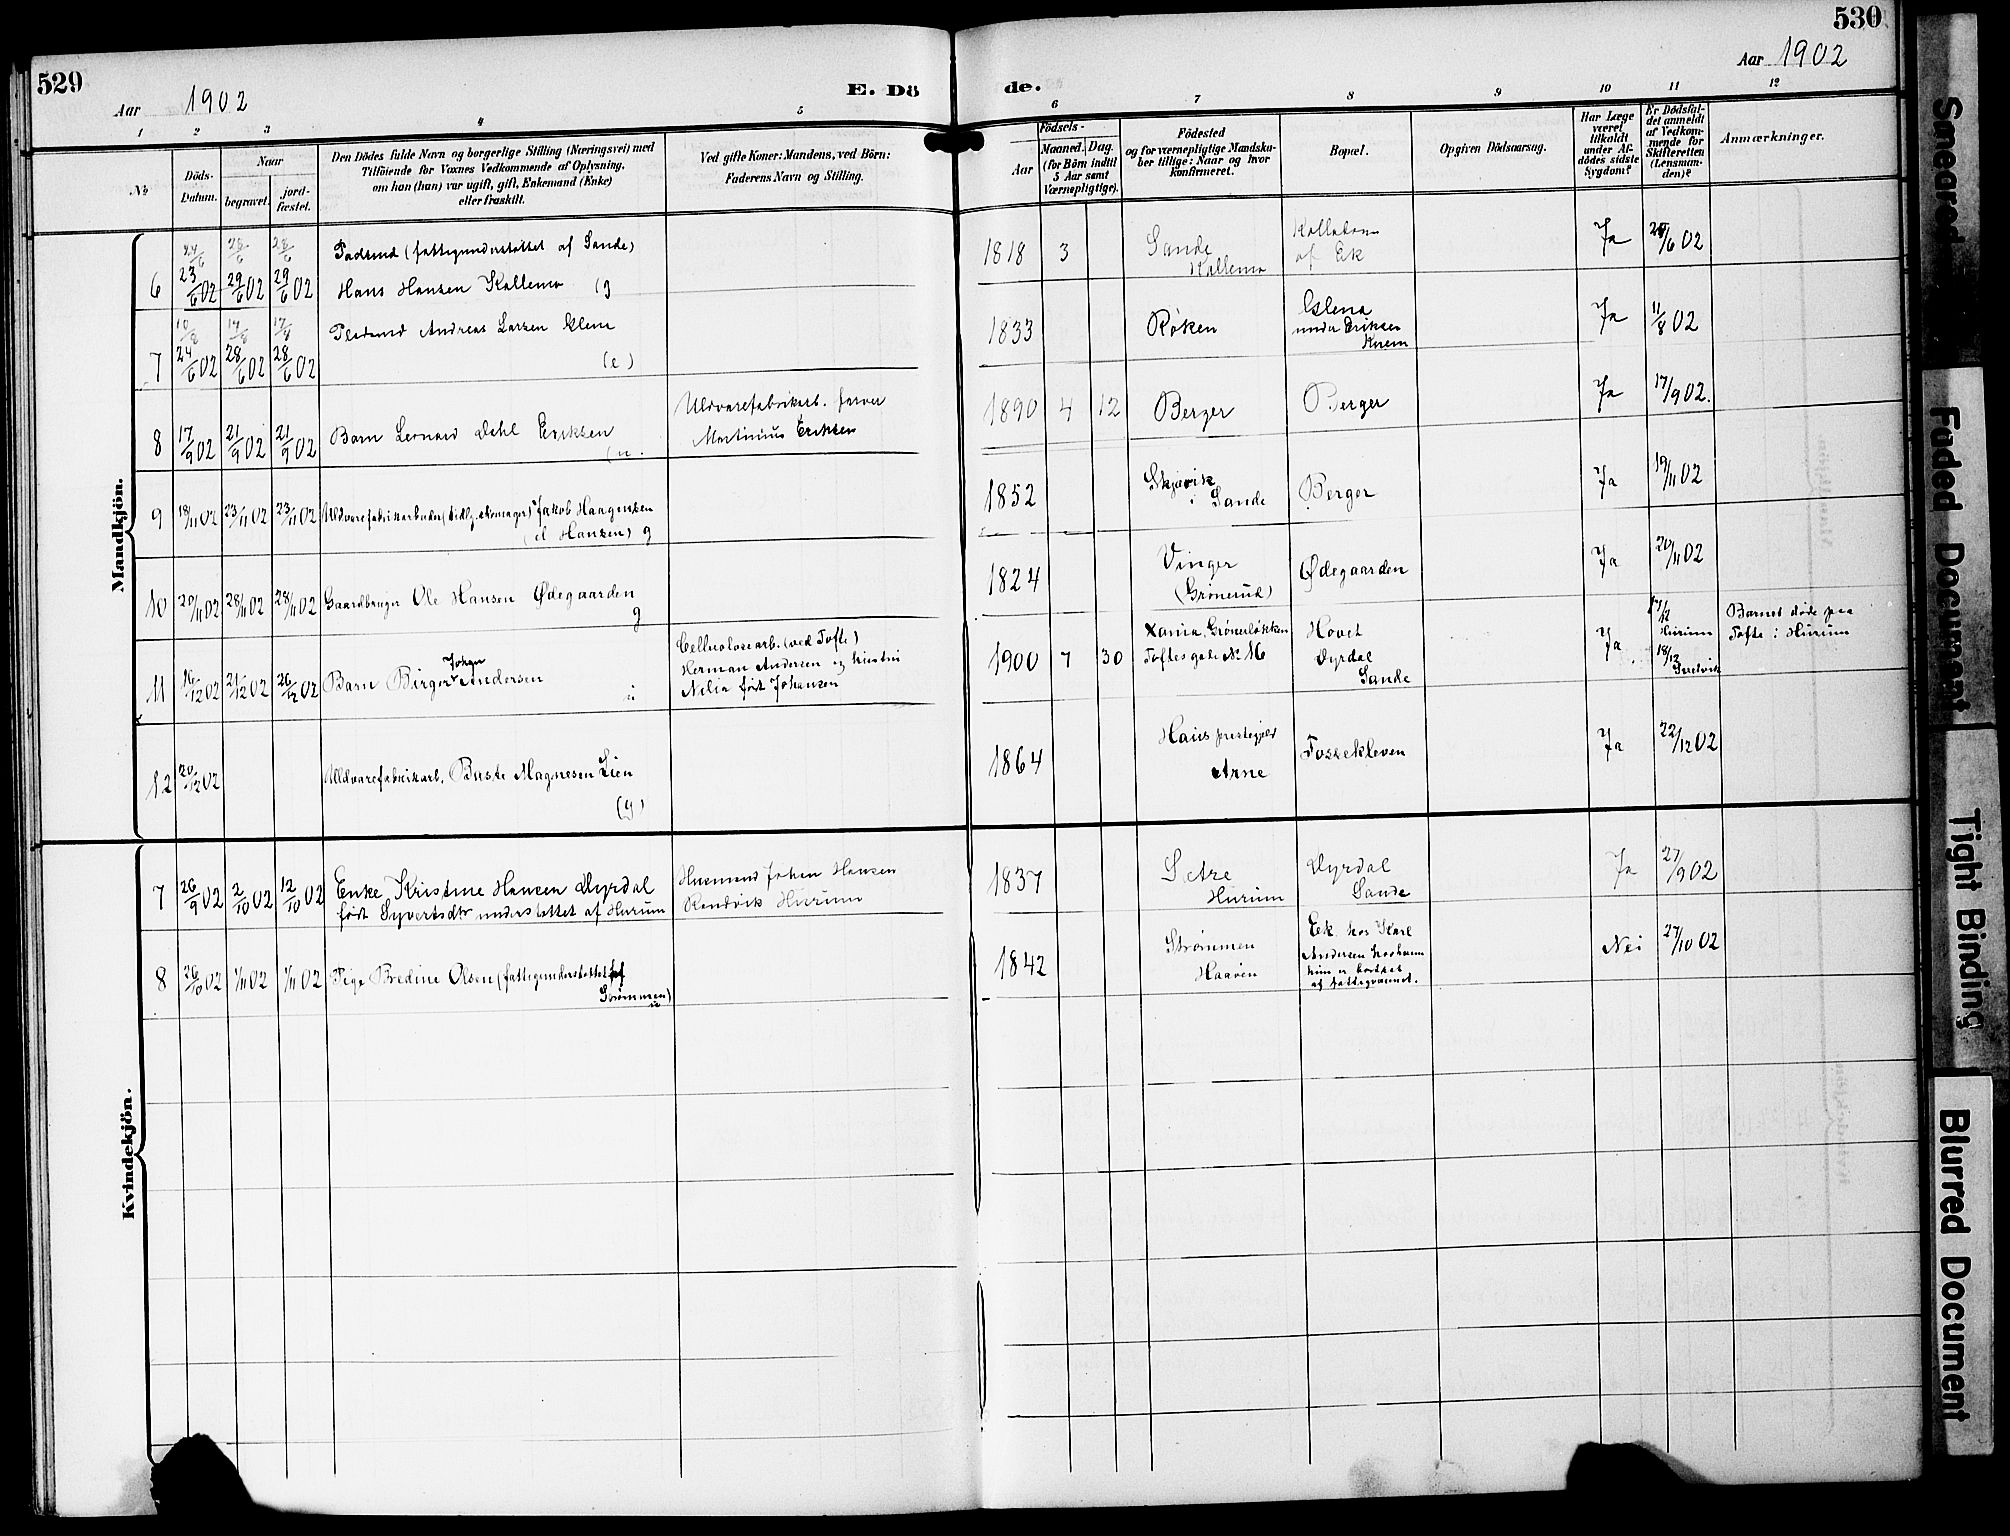 529
Aar 1902
E. Dö
1 2 3 4 5
№
Döds-Datum.
Naar
begravet.
jord-fæstet.
Den Dödes fulde Navn og borgerlige Stilling (Næringsvei) med
Tilføiende for Voxnes Vedkommende af Oplysning,
om han (hun) var ugift, gift, Enkemand (Enke)
eller fraskilt.
Ved gifte Koner: Mandens, ved Börn:
Faderens Navn og Stilling.
Mandkjön.
24/6 28/6 28/6 (fattigunderstøttet af Sande)
6 23/6 02 29/6 02 29/6 02 Hans Hansen Kallemo (g
10/8 14/8 17/8 Andreas Larsen
7 24/6 02 28/6 02 28/6 02 (e)
8 17/9 02 21/9 02 21/9 02 Barn Leonard Dehl Eriksen
Uldvarefabrikarb. farver
Martinius Eriksen
9 18/11 02 23/11 02 23/11 02 Uldvarefabrikarbeider (tidlg. skomager) Jakob Haagensen
(el Hansen) g
10 20/11 02 28/11 02 28/11 02 Gaardbruger Ole Hansen Ødegaarden
g
11 16/12 02 21/12 02 26/12 02 Barn Birger Johan Andersen
u
Cellulosearb. (ved Tofte)
Herman Andersen og hustru
Nilia født Johansen
12 20/12 02 Uldvarefabrikarb. Magnesen Lien
(g)
Kvindekjön.
7 26/9 02 2/10 02 12/10 02 Enke Kristine Hansen Dyrdal
født Syvertsdtr understøttet af Hurum
Husmand Johan Hansen
Hurum
8 26/10 02 1/11 02 1/11 02 Pige Bredine Olsen (fattigunderstøttet af
Strømmen)
u
530
Aar 1902
de.
6 7 8 9 10 11 12
Födsels-
Aar
Maaned. Dag.
(for Börn indtil
5 Aar samt
Værnepligtige).
Födested
og for værnepligtige Mandsku-
ber tillige: Naar og hvor
Konfirmeret.
Bopæl.
Opgiven Dödsaarsag.
Har Læge
været
tilkaldt
under Af-
dödes sidste
Sygdom?
Er Dödsfal-
det anmeldt
af Vedkom-
mende for
Skifteretten
(Lensman-
den)?
Anmærkninger.
1818 3 Sande
Kallemo
af Ek
Ja 28/6 02
1833 Røken
under Eriksen
Ja 11/8 02
1890 4 12 Berger Berger Ja 17/9 02.
1852 Skjøvik
i Sande
Berger Ja 19/11 02
1824 Vinger
(Grønerud)
Ødegaarden Ja 20/11 02
1900 7 30 Xania, Grünerløkken
Toftesgade № 16
Hovet
Dyrdal
Sande
Ja 17/12 Hurum
18/12 Svelvik
Barnet døde paa
Tofte i Hurum
1864 Haus prestegjeld
Arne
Fossekleven Ja 22/12 02
1837 Sætre
Hurum
Dyrdal
Sande
Ja 27/9 02
1842 Strømmen
Haaven
Eek hos Karl
Andersen
hun er bortsat
af fattigvæsenet.
Nei 27/10 02
Smeared
Faded Document
Tight Binding
Blurred Document